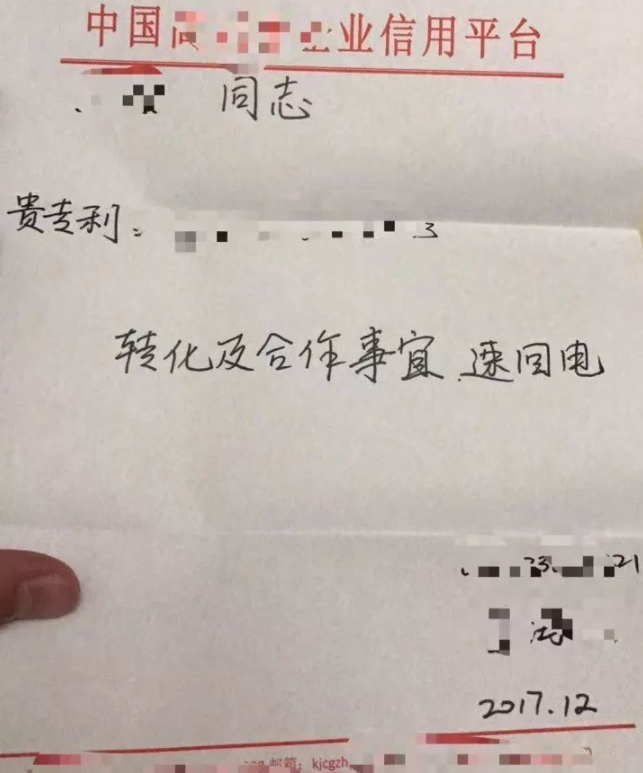 中国 业信用平台
同志
贵专利: 3
转化及合作事宜 速回电
23 21
2017.12
邮箱: kjcgzh